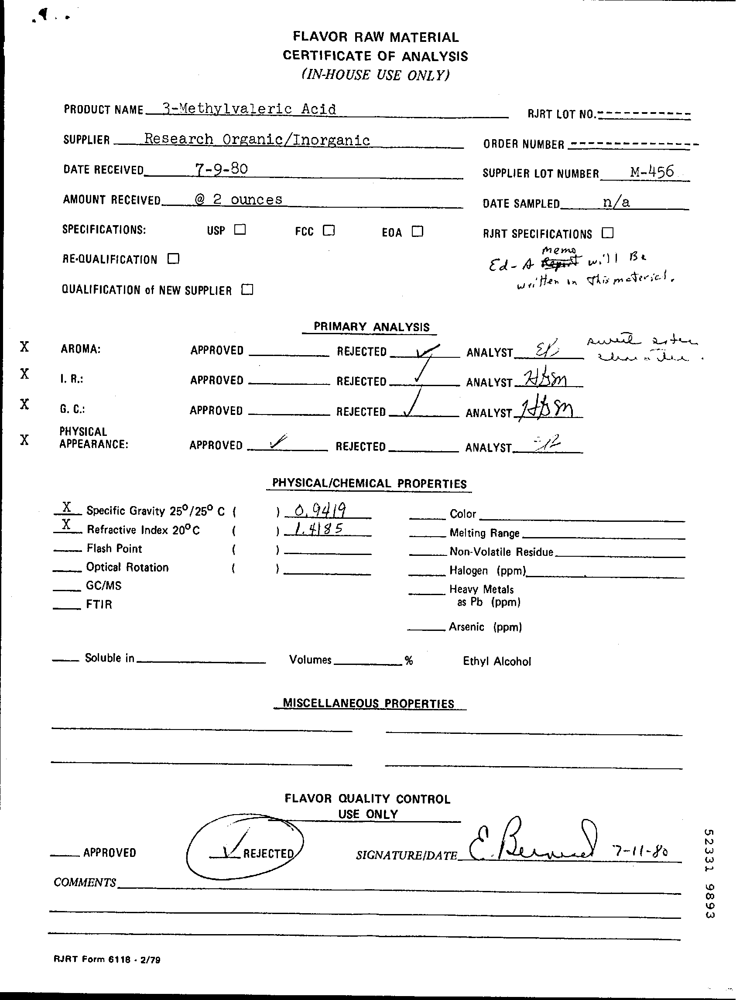 FLAVOR RAW MATERIAL
CERTIFICATE OF ANALYSIS
(IN-HOUSE USE ONLY)
PRODUCT NAME 3-Methylvaleric Acid
RJRT LOT NO. -----------
SUPPLIER Research Organic/Inorganic
ORDER NUMBER --------------
DATE RECEIVED 7-9-80
SUPPLIER LOT NUMBER M-456
AMOUNT RECEIVED @ 2 ounces
DATE SAMPLED n/a
SPECIFICATIONS: USP ☐ FCC ☐ EOA ☐ RJRT SPECIFICATIONS ☐
RE-QUALIFICATION ☐
Ed - A memo will Be
written on this material.
QUALIFICATION of NEW SUPPLIER ☐
PRIMARY ANALYSIS
X AROMA: APPROVED REJECTED ✓ ANALYST sweet
X I. R.: APPROVED REJECTED ✓ ANALYST
X G. C.: APPROVED REJECTED ✓ ANALYST
X PHYSICAL
APPEARANCE: APPROVED ✓ REJECTED ANALYST
PHYSICAL/CHEMICAL PROPERTIES
X Specific Gravity 25º/25º C ( ) 0.9419
X Refractive Index 20ºC ( ) 1.4185
Flash Point ( )
Optical Rotation ( )
GC/MS
FTIR
Color
Melting Range
Non-Volatile Residue
Halogen (ppm)
Heavy Metals
as Pb (ppm)
Arsenic (ppm)
Soluble in Volumes % Ethyl Alcohol
MISCELLANEOUS PROPERTIES
FLAVOR QUALITY CONTROL
USE ONLY
APPROVED ✓ REJECTED SIGNATURE/DATE E. 7-11-80
COMMENTS
52331 9893
RJRT Form 6118 - 2/79